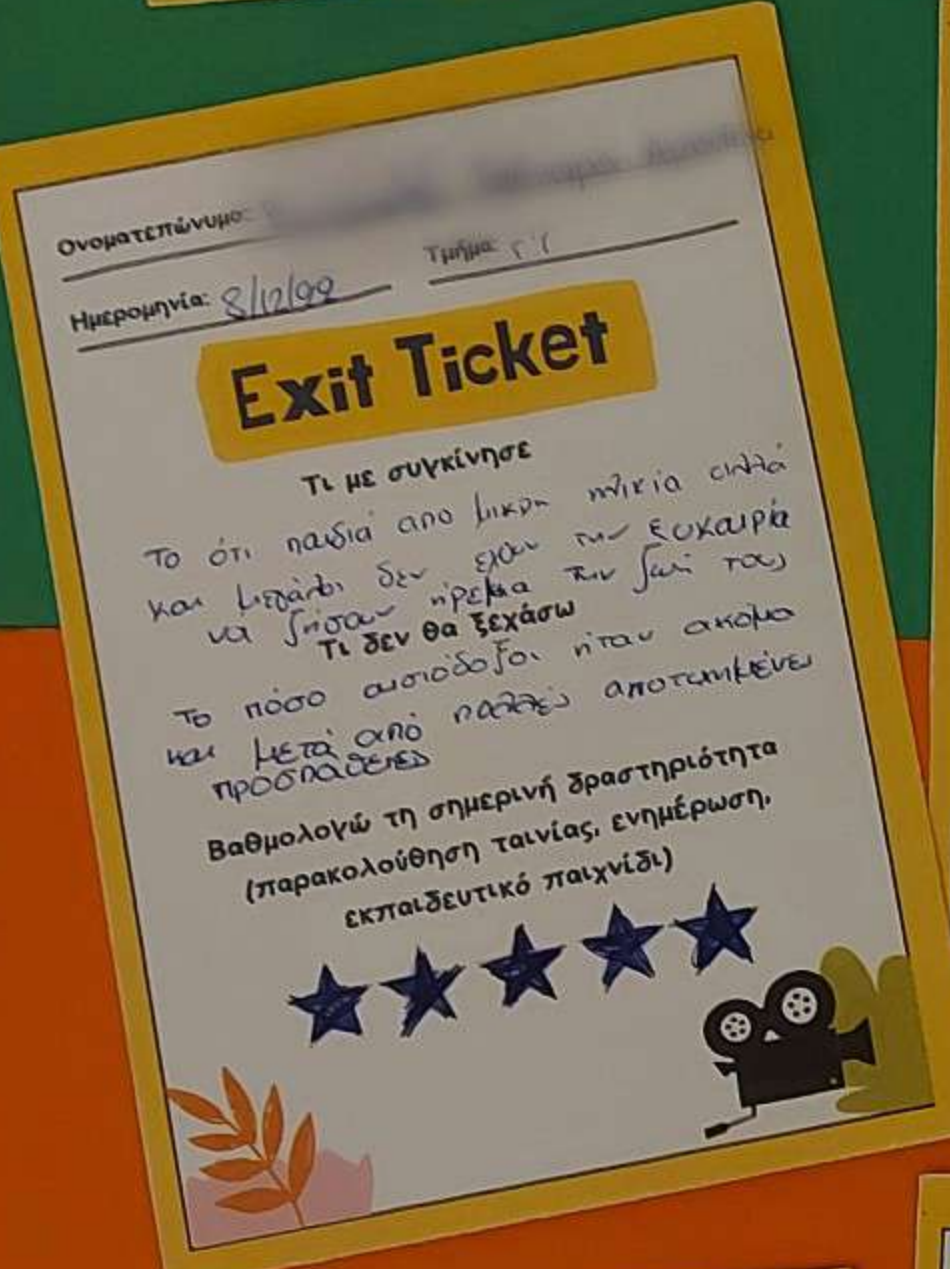 Ονοματεπώνυμο:
Ημερομηνία: 8/12/22 Τμήμα: Γ'1
Exit Ticket
Τι με συγκίνησε
Το ότι παιδιά απο μικρη ηλικία αλλά
και μεγάλοι δεν είχαν την ευκαιρία
να ζήσουν ήρεμα την ζωή τους
Τι δεν θα ξεχάσω
Το πόσο αισιόδοξοι ήταν ακόμα
και μετά από πολλές αποτυχημένες
προσπάθειες
Βαθμολογώ τη σημερινή δραστηριότητα
(παρακολούθηση ταινίας, ενημέρωση,
εκπαιδευτικό παιχνίδι)